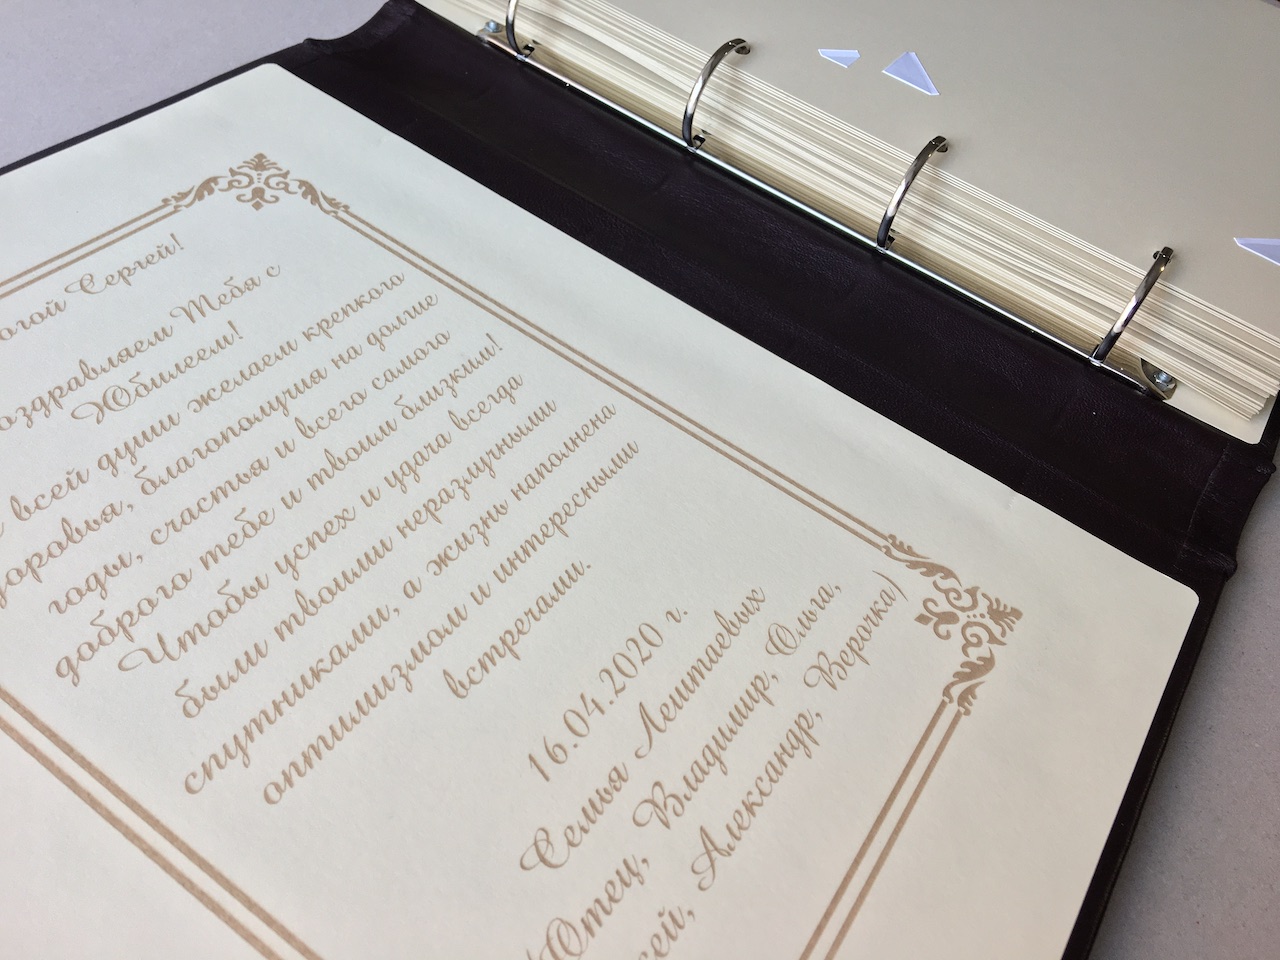 огой Сергей!
оздравляем Тебя с
Юбилеем!
всей души желаем крепкого
доровья, благополучия на долгие
годы, счастья и всего самого
доброго тебе и твоим близким!
Чтобы успех и удача всегда
были твоими неразлучными
спутниками, а жизнь наполнена
оптимизмом и интересными
встречами.
16.04.2020 г.
Семья Лештаевых
(Отец, Владимир, Ольга,
сей, Александр, Верочка)